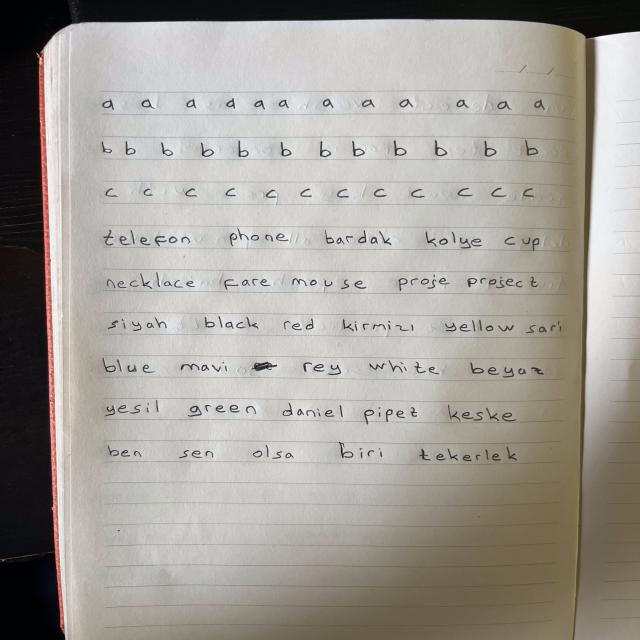 a a a a a a a a a a a a
b b b b b b b b b b b b
c c c c c c c c c c c c
telefon phone bardak kolye cup
necklace fare mouse proje project
siyah black red kirmizi yellow sari
blue mavi rey white beyaz
yesil green daniel pipet keske
ben sen olsa biri tekerlek